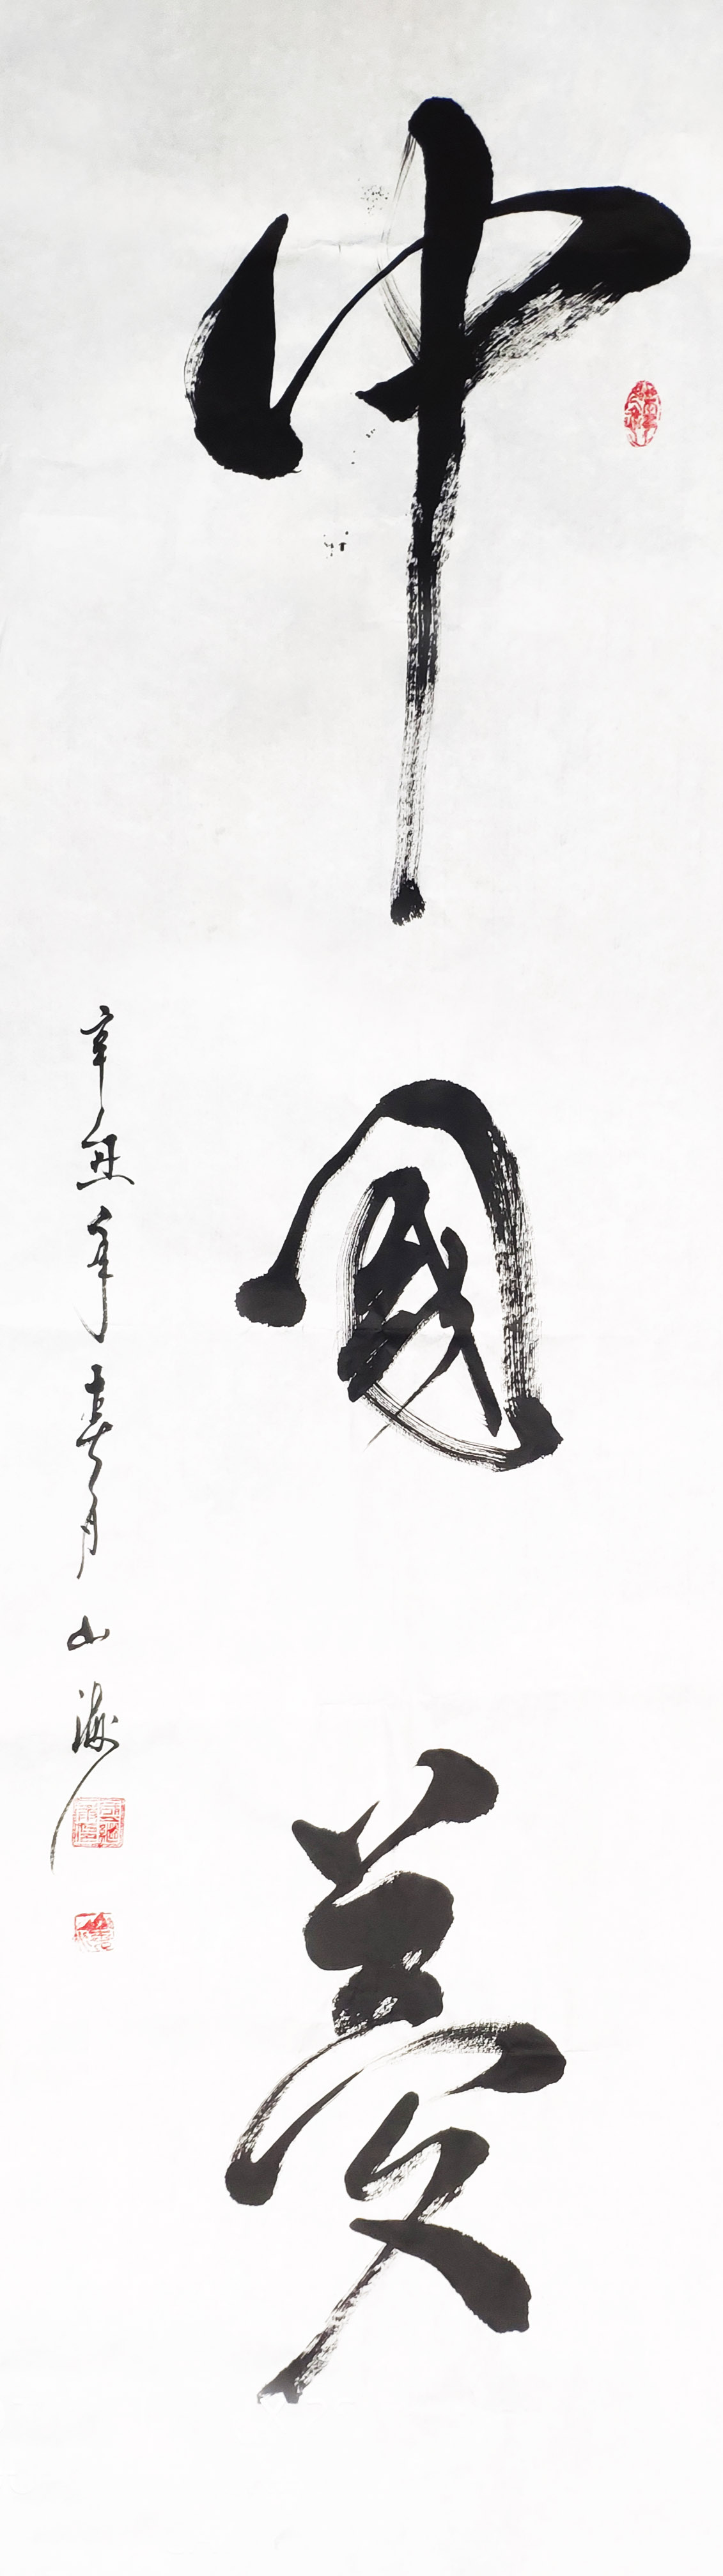 中國夢
辛丑年春月山海